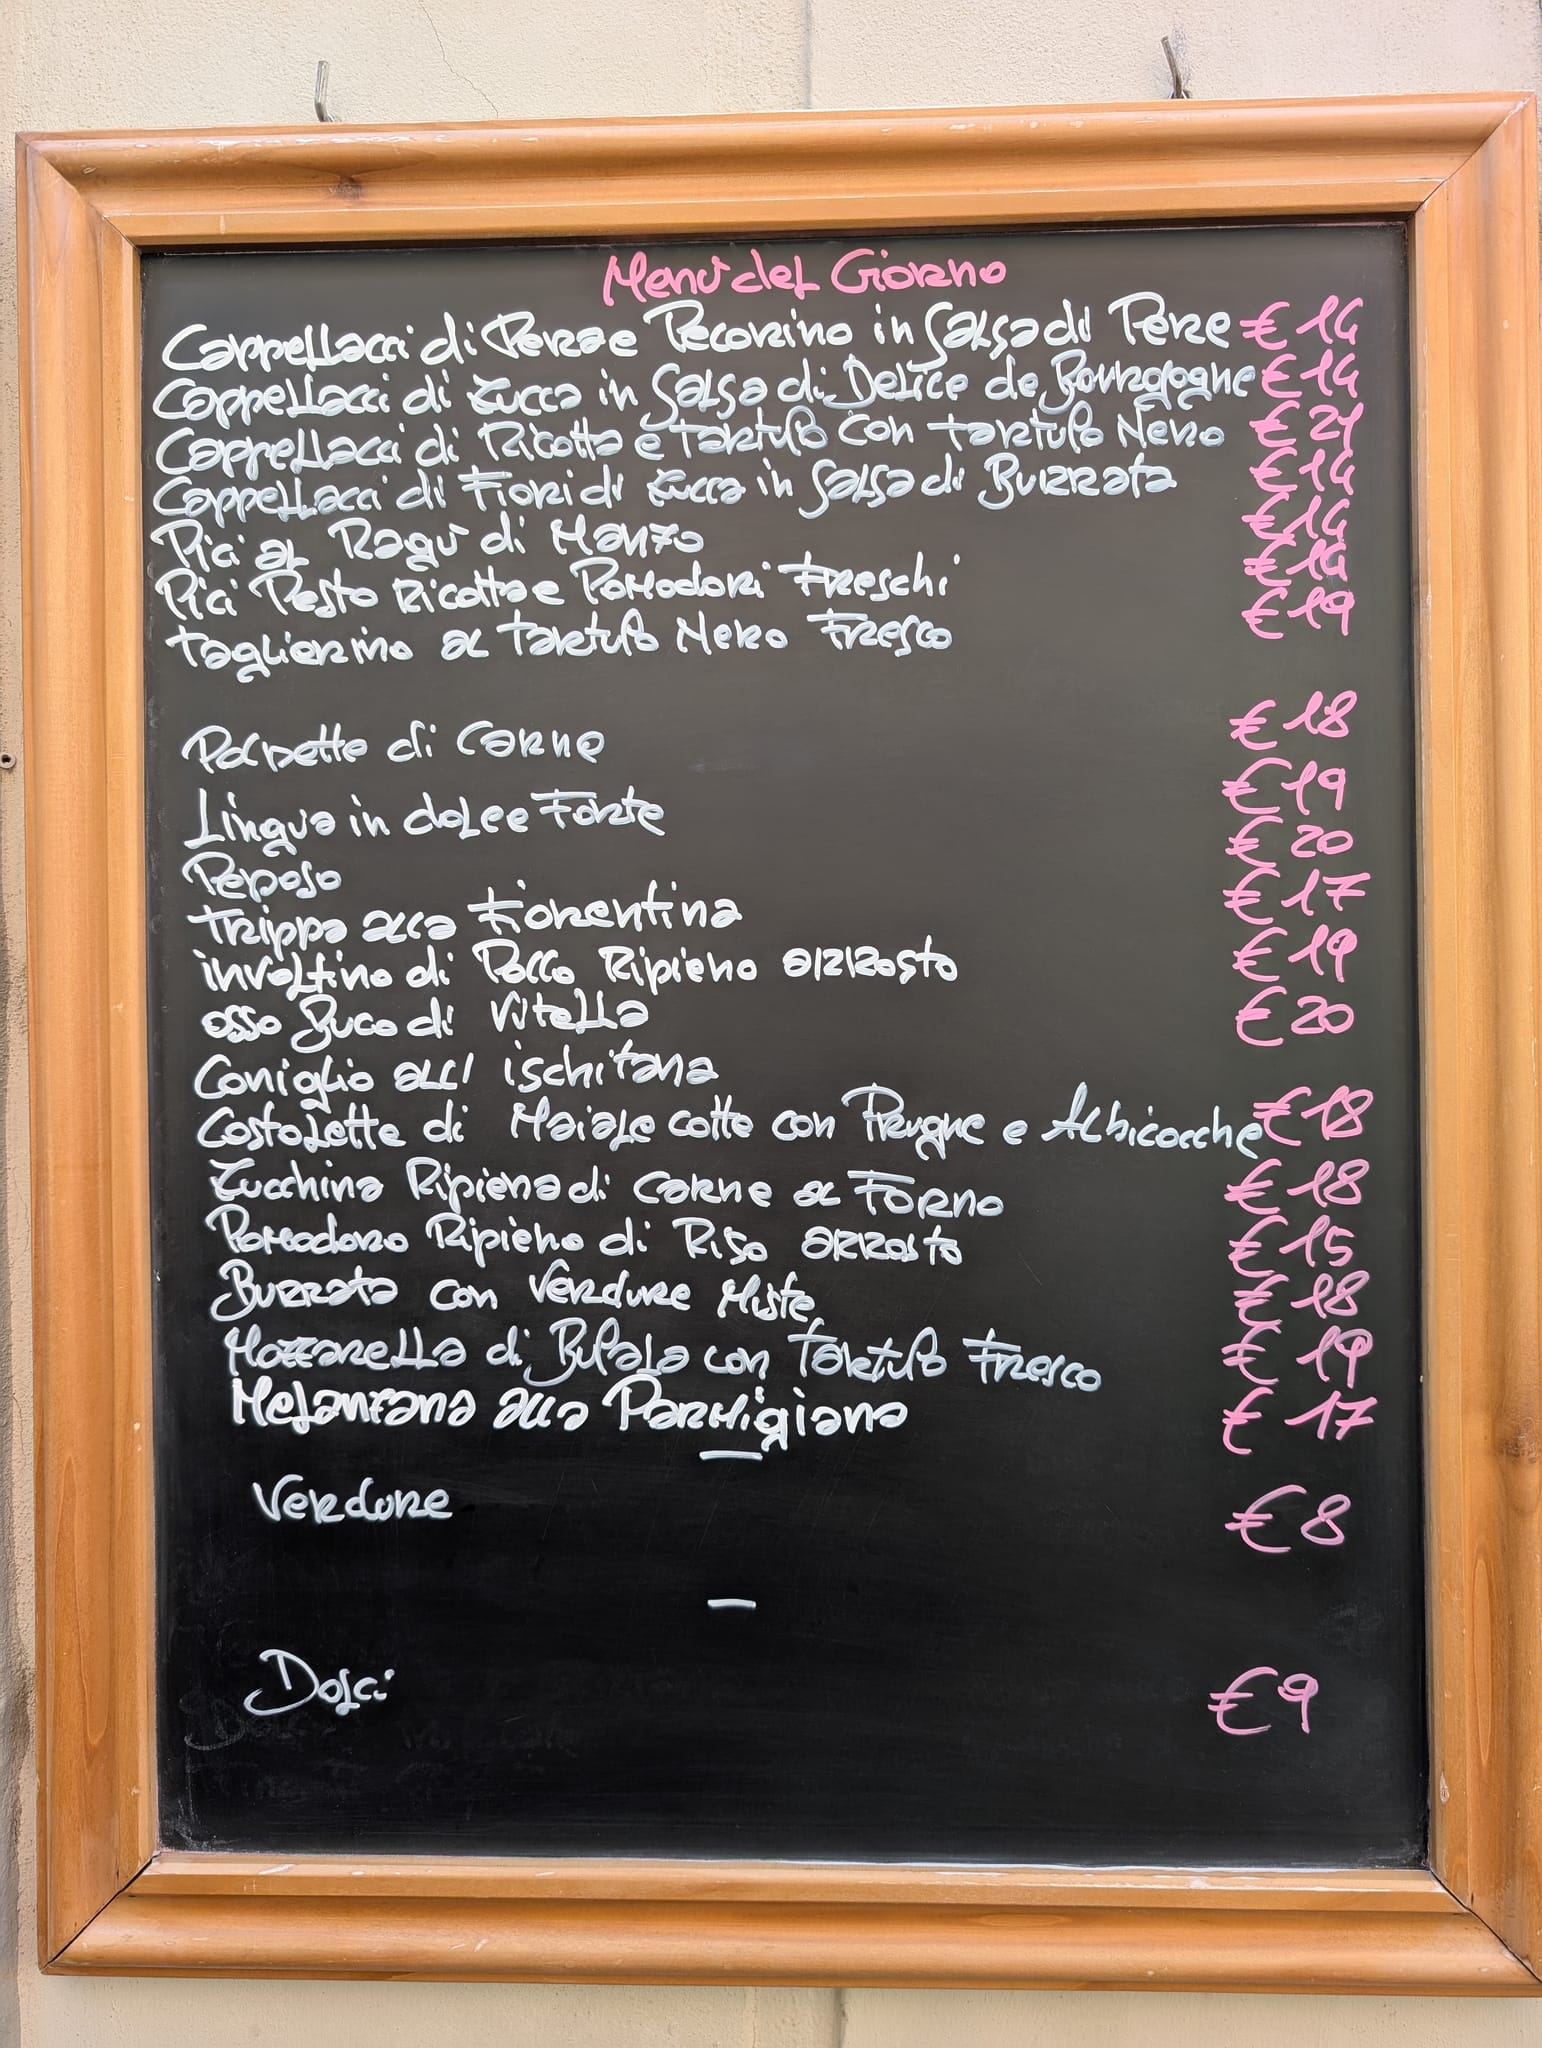 Menù del Giorno
Cappellacci di Pera e Pecorino in Salsa di Pere € 14
Cappellacci di Zucca in Salsa di Delice de Bourgogne € 14
Cappellacci di Ricotta e Tartufo con Tartufo Nero € 21
Cappellacci di Fiori di Zucca in Salsa di Burrata € 14
Pici al Ragù di Manzo € 14
Pici Pesto Ricotta e Pomodori Freschi € 14
Taglierino al Tartufo Nero Fresco € 19
Polpette di Carne € 18
Lingua in dolce e Forte € 19
Peposo € 20
Trippa alla Fiorentina € 17
involtino di Pollo Ripieno arrosto € 19
osso Buco di Vitella € 20
Coniglio all' ischitana
Costolette di Maiale cotte con Prugne e Albicocche € 18
Zucchina Ripiena di Carne al Forno € 18
Pomodoro Ripieno di Riso arrosto € 15
Burrata con Verdure Miste € 18
Mozzarella di Bufala con Tartufo Fresco € 19
Melanzana alla Parmigiana € 17
—
Verdure € 8
—
Dolci € 9